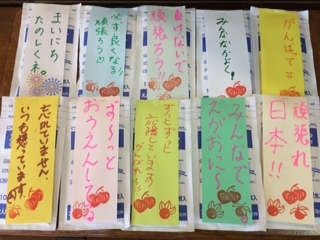 まいにち
たのしくネ。
必ず良くなる!!
頑張ろう
負けないで
頑張ろう!!
みんなかぞく!
がんばって
忘れていません、
いつも想っています。
ず〜っと
おうえんしてる
ずっとずっと
応援しています
がんばれー!
みんなで
えがおに〜
頑張れ
日本!!